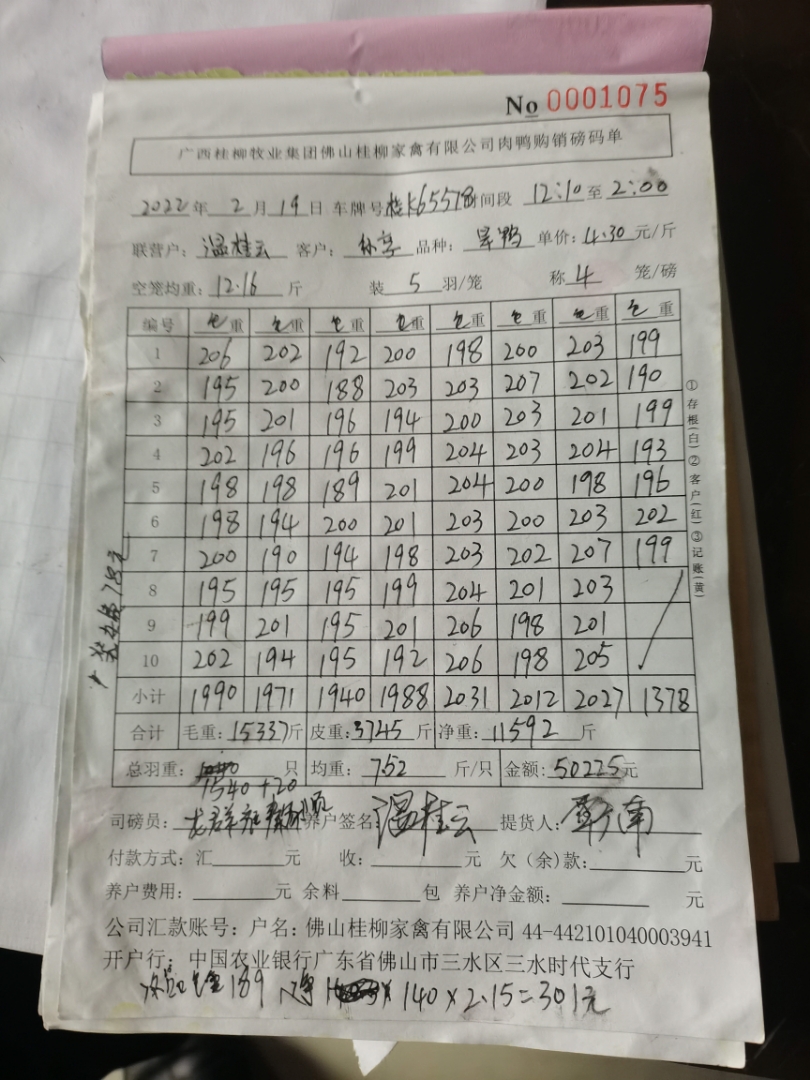 No 0001075
广西桂柳牧业集团佛山桂柳家禽有限公司肉鸭购销磅码单
2022年 2月 19日 车牌号 桂K65578 时间段 12:10 至 2:00
联营户: 温桂云 客户: 品种: 旱鸭 单价: 4.30 元/斤
空笼均重: 12.16 斤 装 5 羽/笼 称 4 笼/磅
编号 毛重 毛重 毛重 毛重 毛重 毛重 毛重 毛重
1 206 202 192 200 198 200 203 199
2 195 200 188 203 203 207 202 190
3 195 201 196 194 200 203 201 199
4 202 196 196 199 204 203 204 193
5 198 198 189 201 204 200 198 196
6 198 194 200 201 203 200 203 202
7 200 190 194 198 203 202 207 199
8 195 195 195 199 204 201 203
9 199 201 195 201 206 198 201
10 202 194 195 192 206 198 205
小计 1990 1971 1940 1988 2031 2012 2027 1378
合计 毛重: 15337斤 皮重: 3745斤 净重: 11592斤
总羽重: 只 均重: 752 斤/只 金额: 50225元
1540+20
司磅员: 养户签名: 温桂云 提货人:
付款方式: 汇 元 收: 元 欠(余)款: 元
养户费用: 元 余料 包 养户净金额: 元
公司汇款账号: 户名: 佛山桂柳家禽有限公司 44-442101040003941
开户行: 中国农业银行广东省佛山市三水区三水时代支行
189 140×2.15=301元
①存根(白)②客户(红)③记账(黄)
78元